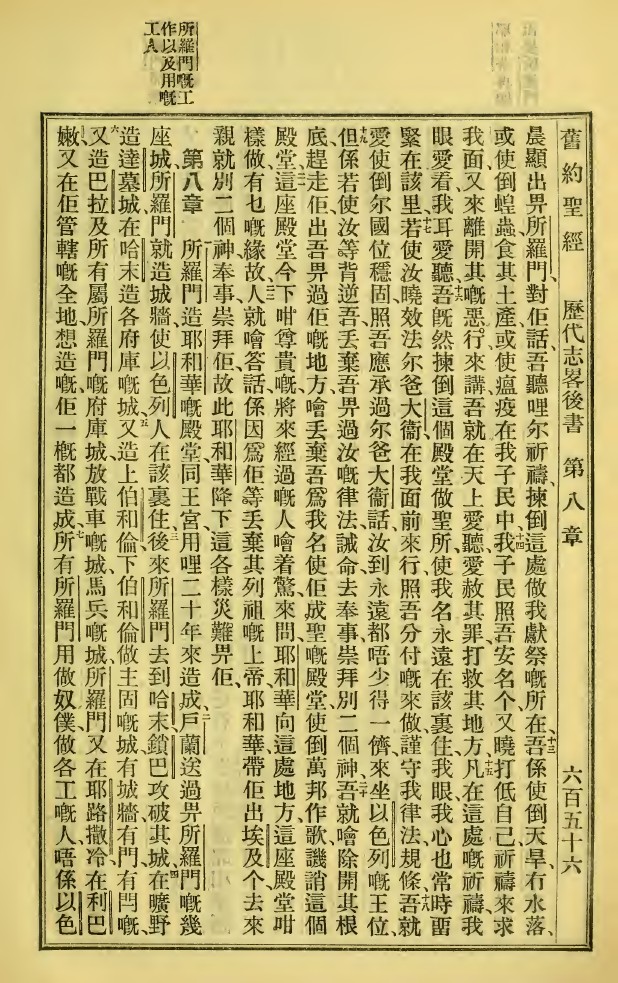 所羅門嘅工
作以及用嘅
工人
舊約聖經 歷代志畧後書 第八章 六百五十六
晨顯出畀所羅門、對佢話、吾聽哩尔祈禱、揀倒這處做我獻祭嘅所在、十三吾係使倒天旱冇水落、
或使倒蝗蟲食其土產、或使瘟疫在我子民中、十四我子民照吾安名个、又曉打低自己、祈禱來求
我面、又來離開其嘅惡行來講、吾就在天上愛聽、愛赦其罪、打救其地方、十五凡在這處嘅祈禱、我
眼愛看、我耳愛聽、十六吾旣然揀倒這個殿堂做聖所、使我名永遠在該裏住、我眼我心也常時畱
緊在該里、十七若使汝曉效法尔爸大衞、在我面前來行、照吾分付嘅來做、謹守我律法規條、十八吾就
愛使倒尔國位穩固、照吾應承過尔爸大衞話、汝到永遠都唔少得一儕來坐以色列嘅王位、
十九但係若使汝等背逆吾、丢棄吾畀過汝嘅律法、誡命、去奉事崇拜別二個神、二十吾就噲除開其根
底、趕走佢出吾畀過佢嘅地方、噲丢棄吾爲我名使佢成聖嘅殿堂、使倒萬邦作歌譏誚這個
殿堂、二一這座殿堂今下咁尊貴嘅、將來經過嘅人噲着驚來問、耶和華向這處地方、這座殿堂咁
樣做有乜嘅緣故、二二人就噲答話、係因爲佢等丢棄其列祖嘅上帝耶和華、帶佢出埃及个、去來
親就別二個神、奉事崇拜佢、故此耶和華降下這各樣災難畀佢、
第八章 所羅門造耶和華嘅殿堂同王宮、用哩二十年來造成、二戶蘭送過畀所羅門嘅幾
座城、所羅門就造城牆、使以色列人在該裏住、三後來所羅門去到哈末鎖巴、攻破其城、四在曠野
造達墓城、在哈末造各府庫嘅城、五又造上伯和倫、下伯和倫、做主固嘅城、有城牆有門有閂嘅、
六又造巴拉及所有屬所羅門嘅府庫城、放戰車嘅城、馬兵嘅城、所羅門又在耶路撒冷、在利巴
嫩、又在佢管轄嘅全地、想造嘅、佢一概都造成、七所有所羅門用做奴僕、做各工嘅人、唔係以色